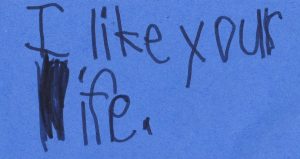 I like your
ife.